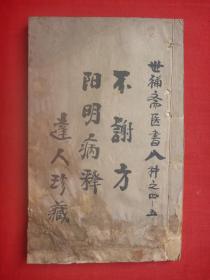 世補斋医書八种之四-五
不謝方
阳明病釋
達人珍藏